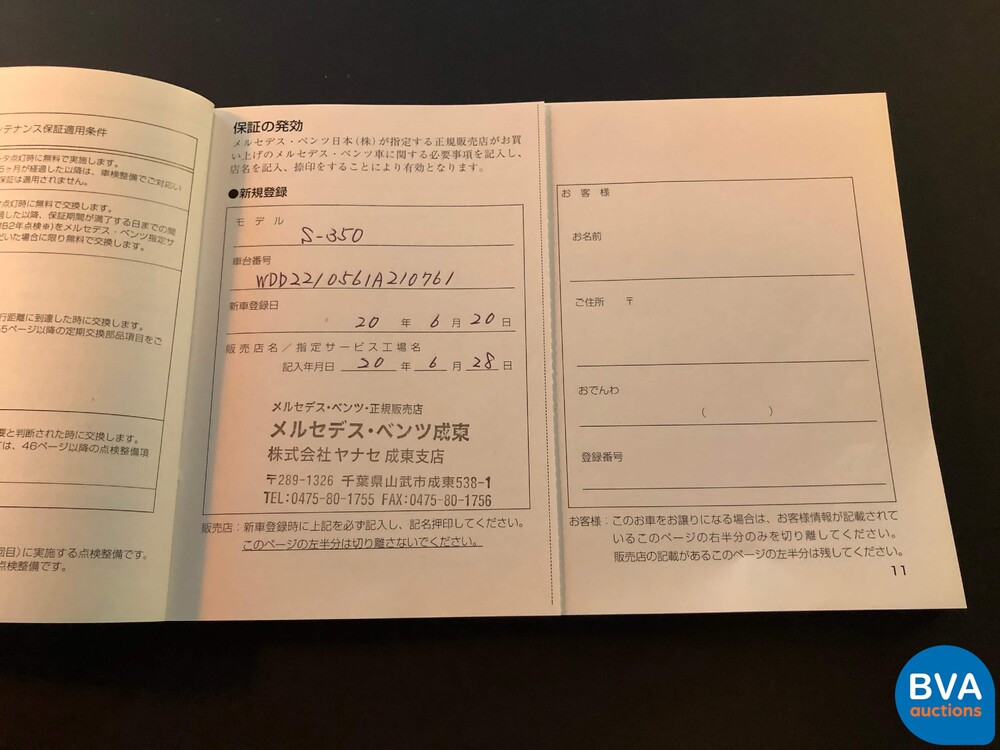 ンテナンス保証適用条件
タ点灯時に無料で実施します。
ヶ月が経過した以降は、車検整備でご対応い
保証は適用されません。
点灯時に無料で交換します。
過した以降、保証期間が満了する日までの間
2年点検※)をメルセデス・ベンツ指定サ
いた場合に限り無料で交換します。
行距離に到達した時に交換します。
5ページ以降の定期交換部品項目をご
要と判断された時に交換します。
ては、46ページ以降の点検整備項
回目)に実施する点検整備です。
点検整備です。
保証の発効
メルセデス・ベンツ日本(株)が指定する正規販売店がお買
い上げのメルセデス・ベンツ車に関する必要事項を記入し、
店名を記入、捺印をすることにより有効となります。
●新規登録
モデル
S-350
車台番号
WDD2210561A210761
新車登録日
20 年 6 月 20 日
販売店名/指定サービス工場名
記入年月日 20 年 6 月 28 日
メルセデス・ベンツ・正規販売店
メルセデス・ベンツ成東
株式会社ヤナセ 成東支店
〒289-1326 千葉県山武市成東538-1
TEL:0475-80-1755 FAX:0475-80-1756
販売店:新車登録時に上記を必ず記入し、記名押印してください。
このページの左半分は切り離さないでください。
お客様
お名前
ご住所 〒
おでんわ
( )
登録番号
お客様:このお車をお譲りになる場合は、お客様情報が記載されて
いるこのページの右半分のみを切り離してください。
販売店の記載があるこのページの左半分は残してください。
11
BVA
auctions